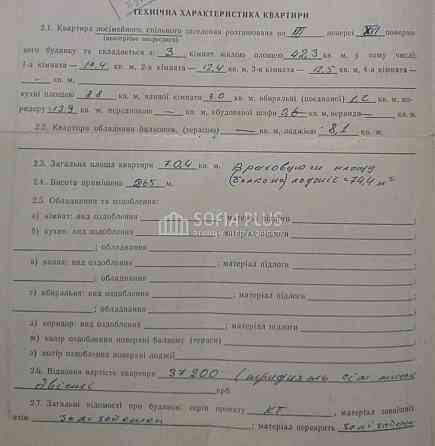 ТЕХНІЧНА ХАРАКТЕРИСТИКА КВАРТИРИ
2.1. Квартира посімейного, спільного заселення розташована на III поверсі XII поверхо-
(непотрібне закреслити)
вого будинку та складається з 3 кімнат жилою площею 42,3 кв. м, у тому числі:
1-а кімната — 17,4 кв. м, 2-а кімната — 12,4 кв. м, 3-я кімната — 12,5 кв. м, 4-а кімната —
— кв. м,
кухні площею 8.8 кв. м, ванної кімнати кв. м, вбиральні (поєднаної) 1,2 кв. м, ко-
ридору 13,9 кв. м, передпокою — кв. м, вбудованої шафи 0,6 кв. м, веранди — кв. м.
2.2. Квартира обладнана балконом, (терасою) кв. м, лоджією 8,1 кв. м.
2.3. Загальна площа квартири 70,4 кв. м. Враховуючи площу
2.4. Висота приміщень 265 м. (балкона) лоджії = 74,4 м²
2.5. Обладнання та оздоблення:
а) кімнат: вид оздоблення ; матеріал підлоги ;
б) кухні: вид оздоблення ; матеріал підлоги
; обладнання
SOFIA PLUS
в) ванни: вид оздоблення ; матеріал підлоги
; обладнання
г) вбиральні: вид оздоблення ; матеріал підлоги
; обладнання
д) коридор: вид оздоблення ; матеріал підлоги ;
ж) колір оздоблення поверхні балкону (тераси)
з) колір оздоблення поверхні лоджії
2.6. Відновна вартість квартири 37200 (тридцять сім тисяч
двісті) крб.
2.7. Загальні відомості про будинок: серія проекту КТ, матеріал зовнішніх
стін залізобетон ; матеріал перекрить залізобетон